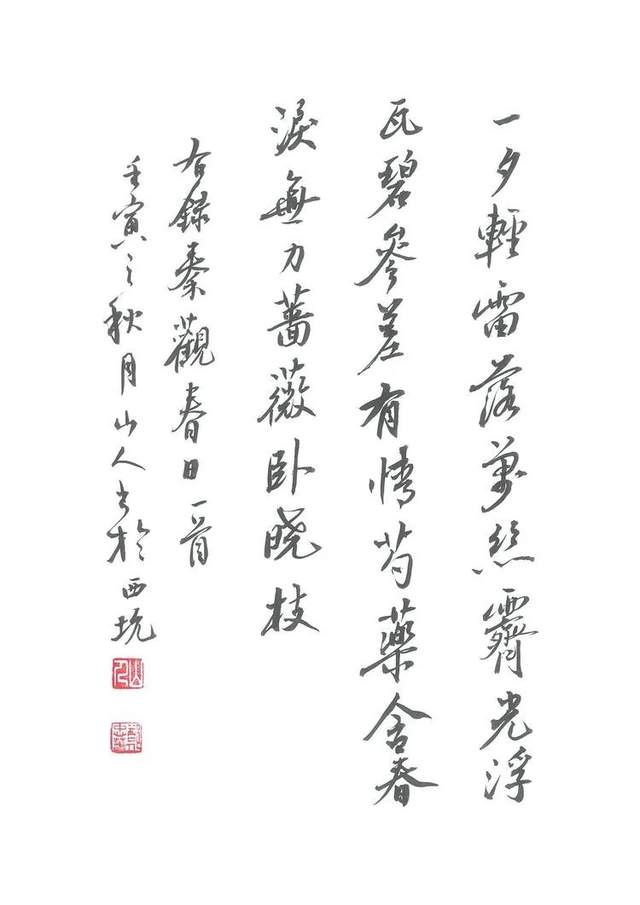 一夕輕雷落萬絲霽光浮
瓦碧參差有情芍藥含春
淚無力薔薇卧曉枝
右録秦觀春日一首
壬寅之秋月山人書於西坑
山人